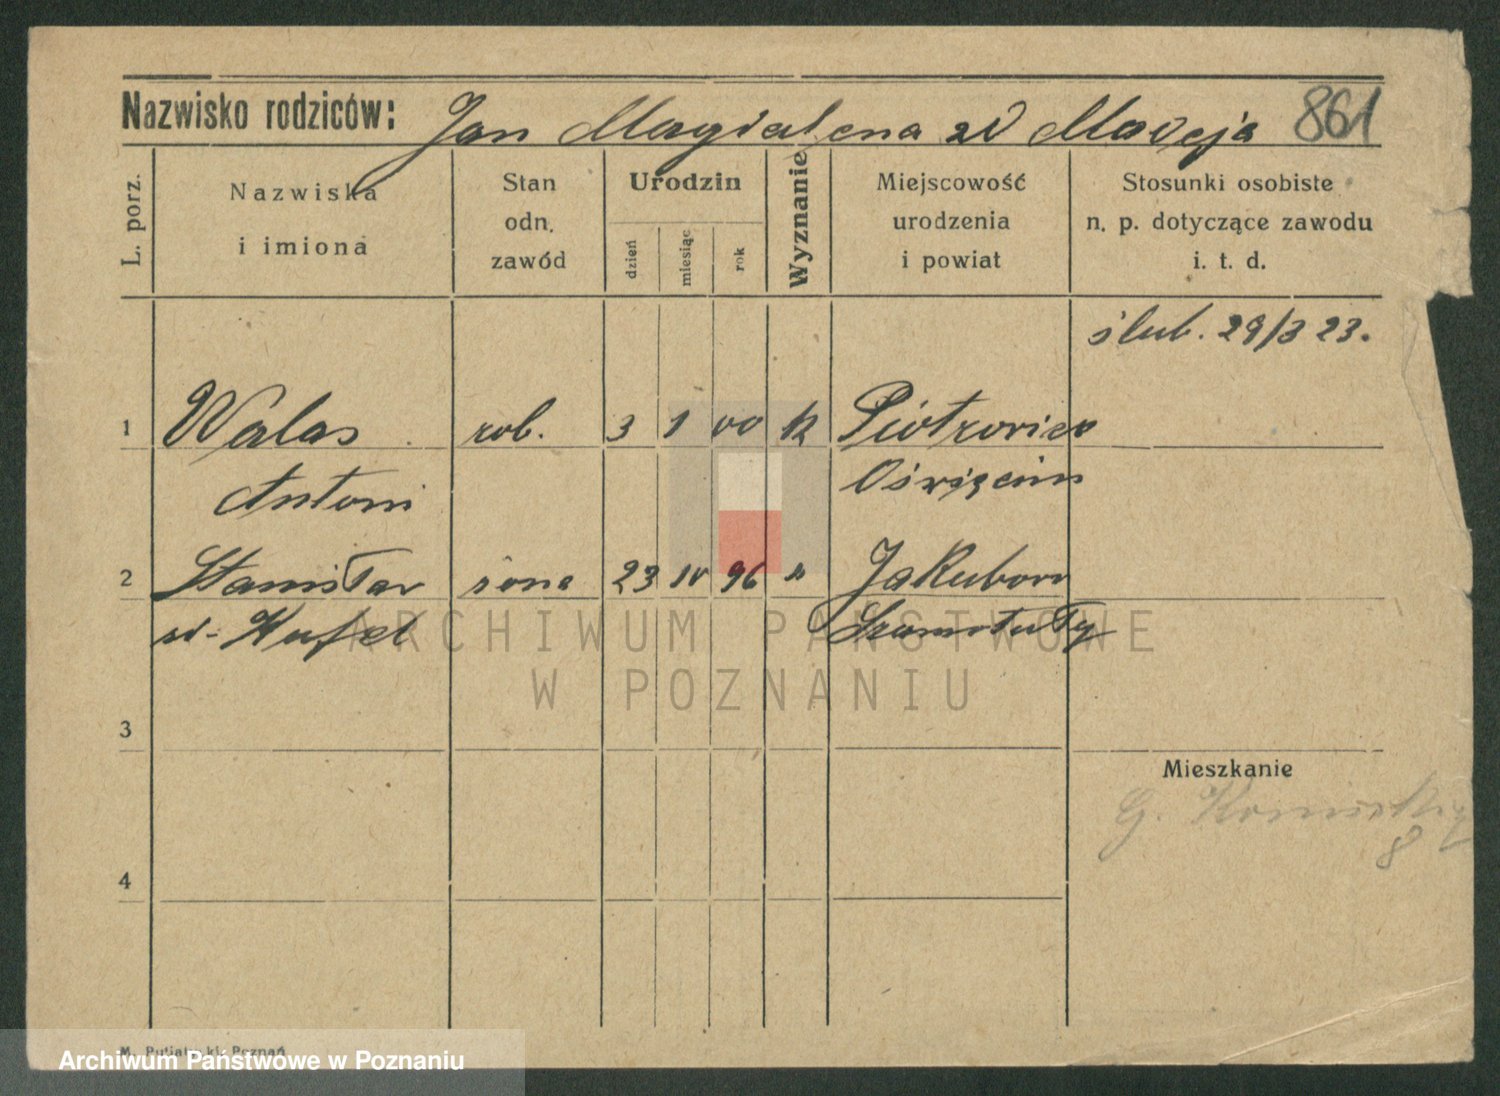 Nazwisko rodziców: Jan Magdalena zd Maceja 861
L. porz.
Nazwiska
i imiona
Stan
odn.
zawód
Urodzin
dzień
miesiąc
rok
Wyznanie
Miejscowość
urodzenia
i powiat
Stosunki osobiste
n. p. dotyczące zawodu
i. t. d.
ślub. 29/3 23.
1 Walas rob. 3 1 00 K Piotrowice
Antoni Oświęcim
2 Stanisław żona 23 IV 96 " Jakubow
zd. Szamotuły
ARCHIWUM PAŃSTWOWE
W POZNANIU
3
Mieszkanie
G.
8
4
M. Putiatycki, Poznań
Archiwum Państwowe w Poznaniu